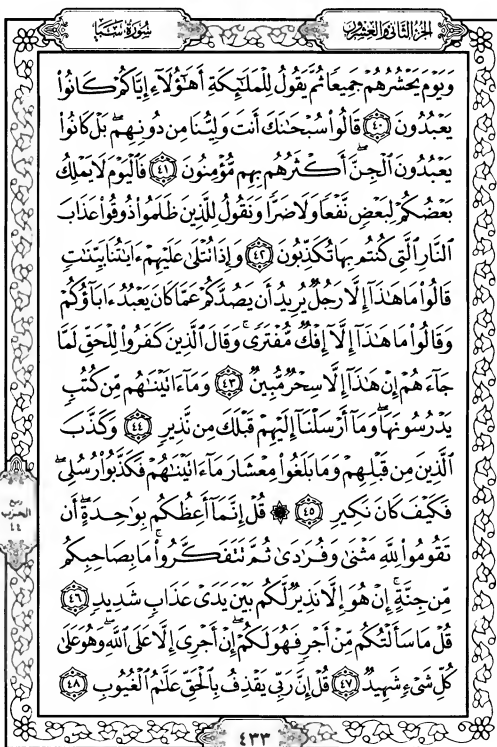 سُورَةُ سَبَإٍ
الجُزْءُ الثَّانِي وَالعِشْرُونَ
وَيَوْمَ يَحْشُرُهُمْ جَمِيعًا ثُمَّ يَقُولُ لِلْمَلَٰٓئِكَةِ أَهَٰٓؤُلَآءِ إِيَّاكُمْ كَانُوا۟
يَعْبُدُونَ ٤٠ قَالُوا۟ سُبْحَٰنَكَ أَنتَ وَلِيُّنَا مِن دُونِهِم ۖ بَلْ كَانُوا۟
يَعْبُدُونَ ٱلْجِنَّ ۖ أَكْثَرُهُم بِهِم مُّؤْمِنُونَ ٤١ فَٱلْيَوْمَ لَا يَمْلِكُ
بَعْضُكُمْ لِبَعْضٍ نَّفْعًا وَلَا ضَرًّا وَنَقُولُ لِلَّذِينَ ظَلَمُوا۟ ذُوقُوا۟ عَذَابَ
ٱلنَّارِ ٱلَّتِى كُنتُم بِهَا تُكَذِّبُونَ ٤٢ وَإِذَا تُتْلَىٰ عَلَيْهِمْ ءَايَٰتُنَا بَيِّنَٰتٍ
قَالُوا۟ مَا هَٰذَآ إِلَّا رَجُلٌ يُرِيدُ أَن يَصُدَّكُمْ عَمَّا كَانَ يَعْبُدُ ءَابَآؤُكُمْ
وَقَالُوا۟ مَا هَٰذَآ إِلَّآ إِفْكٌ مُّفْتَرًى ۚ وَقَالَ ٱلَّذِينَ كَفَرُوا۟ لِلْحَقِّ لَمَّا
جَآءَهُمْ إِنْ هَٰذَآ إِلَّا سِحْرٌ مُّبِينٌ ٤٣ وَمَآ ءَاتَيْنَٰهُم مِّن كُتُبٍ
يَدْرُسُونَهَا ۖ وَمَآ أَرْسَلْنَآ إِلَيْهِمْ قَبْلَكَ مِن نَّذِيرٍ ٤٤ وَكَذَّبَ
ٱلَّذِينَ مِن قَبْلِهِمْ وَمَا بَلَغُوا۟ مِعْشَارَ مَآ ءَاتَيْنَٰهُمْ فَكَذَّبُوا۟ رُسُلِى ۖ
فَكَيْفَ كَانَ نَكِيرِ ٤٥ ۞ قُلْ إِنَّمَآ أَعِظُكُم بِوَٰحِدَةٍ ۖ أَن
تَقُومُوا۟ لِلَّهِ مَثْنَىٰ وَفُرَٰدَىٰ ثُمَّ تَتَفَكَّرُوا۟ ۚ مَا بِصَاحِبِكُم
مِّن جِنَّةٍ ۚ إِنْ هُوَ إِلَّا نَذِيرٌ لَّكُم بَيْنَ يَدَىْ عَذَابٍ شَدِيدٍ ٤٦
قُلْ مَا سَأَلْتُكُم مِّنْ أَجْرٍ فَهُوَ لَكُمْ ۖ إِنْ أَجْرِىَ إِلَّا عَلَى ٱللَّهِ ۖ وَهُوَ عَلَىٰ
كُلِّ شَىْءٍ شَهِيدٌ ٤٧ قُلْ إِنَّ رَبِّى يَقْذِفُ بِٱلْحَقِّ عَلَّٰمُ ٱلْغُيُوبِ ٤٨
ربع
الحزب
٤٤
٤٣٣